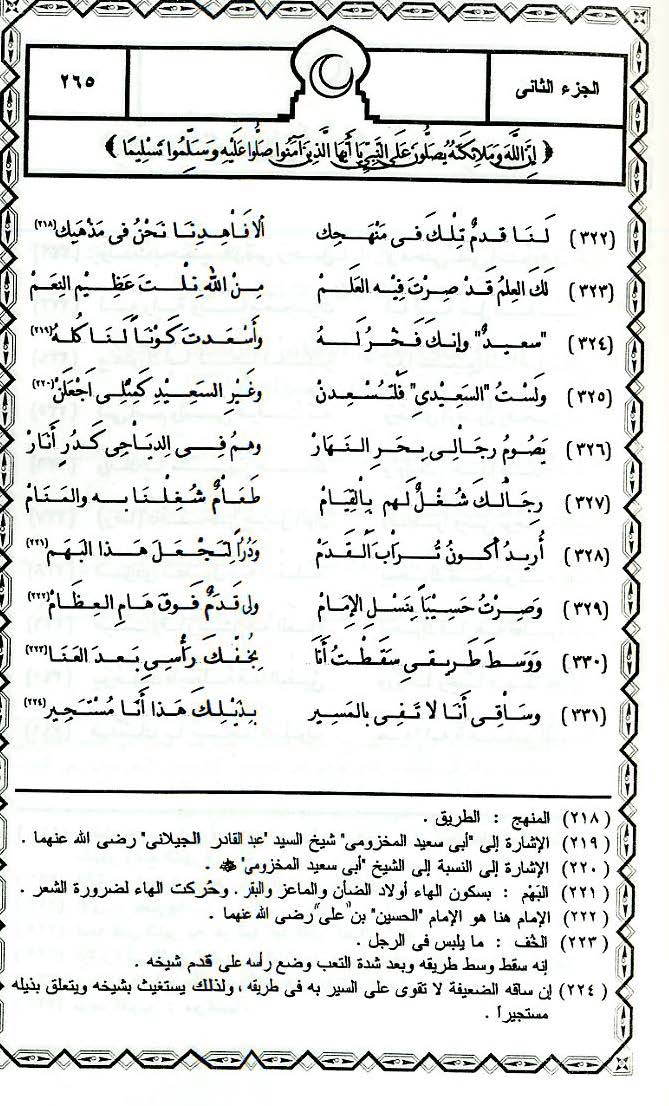 الجزء الثانى
٢٦٥
﴿ إِنَّ اللَّهَ وَمَلَائِكَتَهُ يُصَلُّونَ عَلَى النَّبِيِّ يَا أَيُّهَا الَّذِينَ آمَنُوا صَلُّوا عَلَيْهِ وَسَلِّمُوا تَسْلِيمًا ﴾
(٣٢٢) لَنَا قدمٌ تِلْكَ فى مَنْهَجِك ألا فَاهْدِنَا نَحْنُ فى مَذْهَبِك (٢١٨)
(٣٢٣) لَكَ العِلمُ قَدْ صِرْتَ فِيْه العَلَمْ مِنْ اللهِ نِلتَ عَظِيْمِ النِعَمْ
(٣٢٤) "سعيدٌ" وإنكَ فَخْرُ لَهُ وَأسْعَدتَ كَوْنَاً لَنا كلهُ (٢١٩)
(٣٢٥) وَلَسْتُ "السَعِيْدِي" فَلتُسْعِدنْ وَغَيْرِ السَعِيْدِ كَمِثْلِى اجْعَلَنْ (٢٢٠)
(٣٢٦) يَصُومُ رِجَالِى بِحَرِ النَهارْ وهمْ فِى الدِيَاجِى كَدُرٍ أنَارْ
(٣٢٧) رِجَالكَ شُغْلٌ لَهم بِالقِيَامْ طَعَامٌ شُغِلْنَا بِه والمَنَامْ
(٣٢٨) أُرِيدُ أكونُ تُرَابَ القَدَمْ وَدُرَاً لِتَجْعَلَ هَذا البَهَم (٢٢١)
(٣٢٩) وَصِرْتُ حَسِيْبَاً بِنَسْلِ الإمَامْ ولى قَدَمٌ فَوقَ هَامِ العِظَامْ (٢٢٢)
(٣٣٠) وَوَسطَ طَرِيقى سَقَطتُ أنَا بِخُفكَ رَأسِى بَعدَ العَنَا (٢٢٣)
(٣٣١) وسَاقِى أنَا لا تَفِى بالمَسِير بِذَيْلِكَ هَذا أنَا مُسْتَجِير (٢٢٤)
(٢١٨) المنهج : الطريق .
(٢١٩) الإشارة إلى "أبى سعيد المخزومى" شيخ السيد "عبد القادر الجيلانى" رضى الله عنهما .
(٢٢٠) الإشارة إلى النسبة إلى الشيخ "أبى سعيد المخزومى" ﷺ .
(٢٢١) البَهْم : بسكون الهاء أولاد الضأن والماعز والبقر . وحُركت الهاء لضرورة الشعر .
(٢٢٢) الإمام هنا هو الإمام "الحسين" بن "على" رضى الله عنهما .
(٢٢٣) الخُف : ما يلبس فى الرجل .
إنه سقط وسط طريقه وبعد شدة التعب وضع رأسه على قدم شيخه .
(٢٢٤) إن ساقه الضعيفة لا تقوى على السير به فى طريقه ، ولذلك يستغيث بشيخه ويتعلق بذيله
مستجيراً .